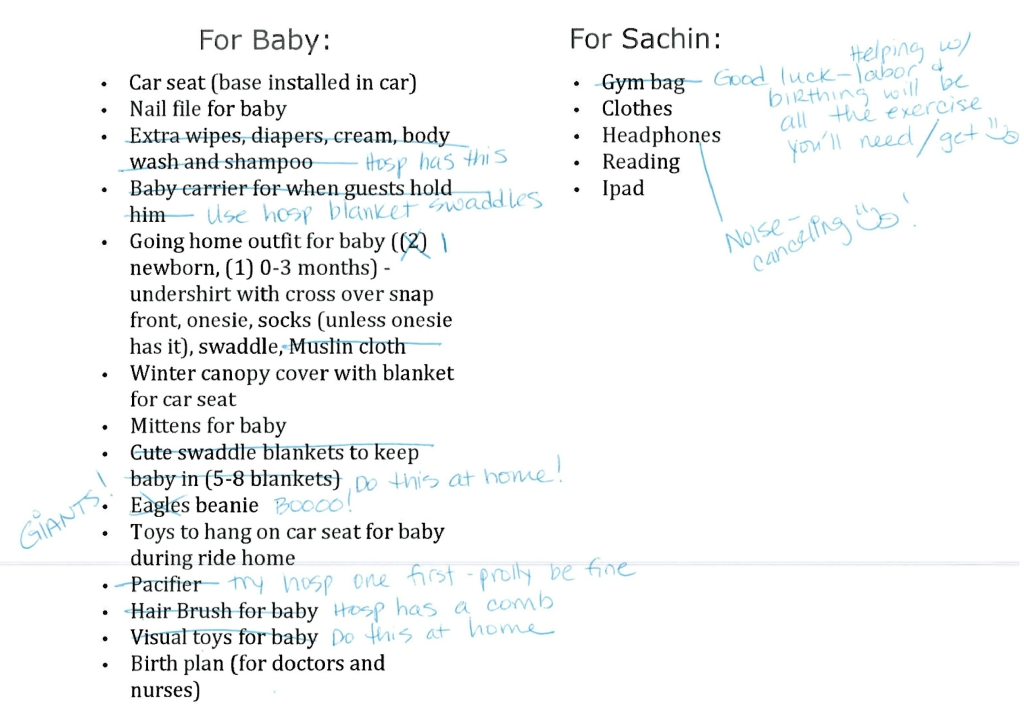 For Baby:
• Car seat (base installed in car)
• Nail file for baby
• Extra wipes, diapers, cream, body
wash and shampoo Hosp has this
• Baby carrier for when guests hold
him Use hosp blanket swaddles
• Going home outfit for baby ((2) 1
newborn, (1) 0-3 months) -
undershirt with cross over snap
front, onesie, socks (unless onesie
has it), swaddle, Muslin cloth
• Winter canopy cover with blanket
for car seat
• Mittens for baby
• Cute swaddle blankets to keep
baby in (5-8 blankets) Do this at home!
GIANTS!
• Eagles beanie BOOOO!
• Toys to hang on car seat for baby
during ride home
• Pacifier try hosp one first - prolly be fine
• Hair Brush for baby Hosp has a comb
• Visual toys for baby Do this at home
• Birth plan (for doctors and
nurses)
For Sachin:
• Gym bag Good luck - labor &
Helping w/
birthing will be
all the exercise
you'll need/get
• Clothes
• Headphones
• Reading
• Ipad
Noise-
canceling!